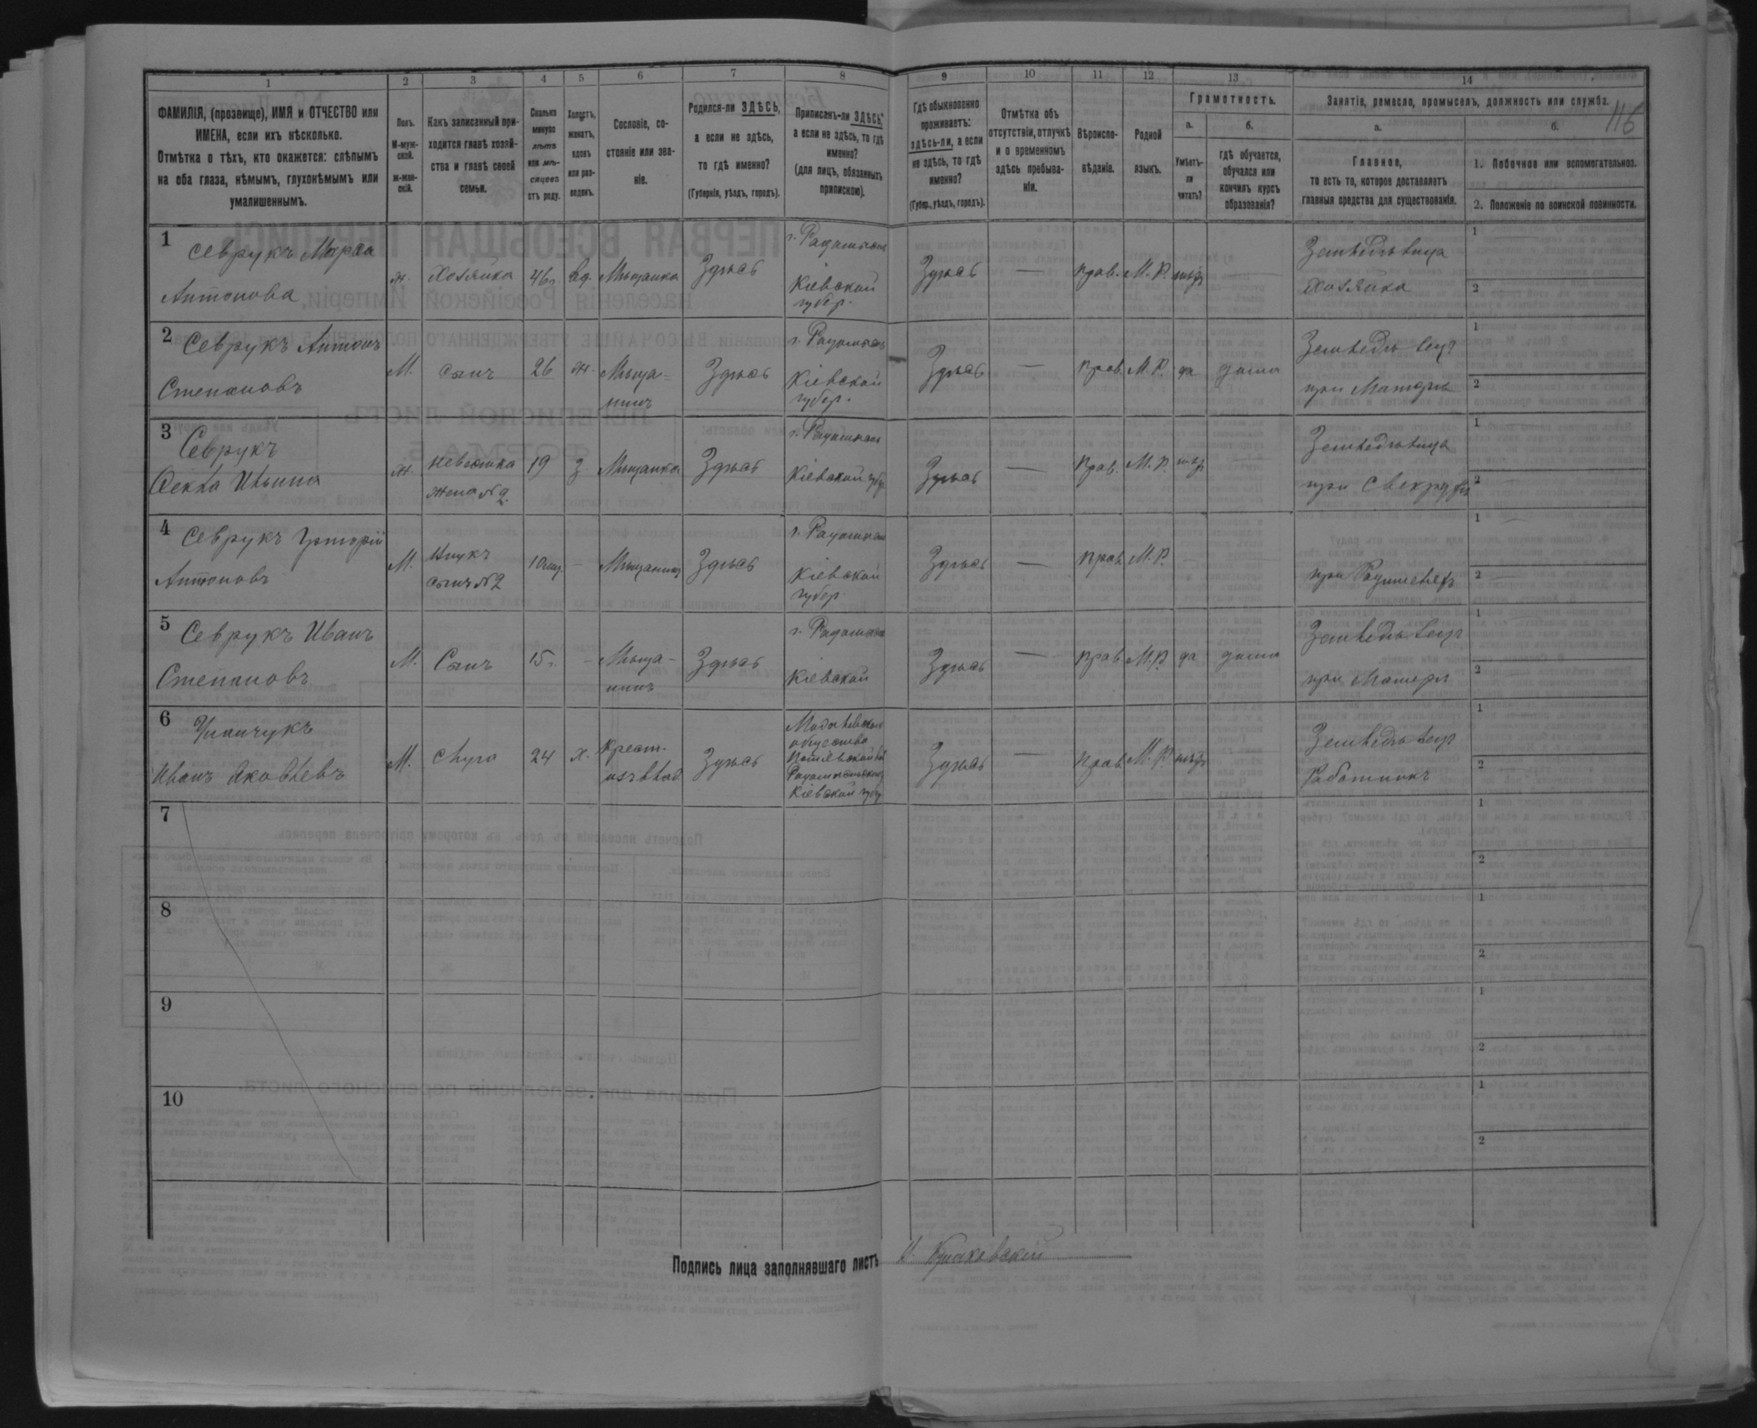 1
2
3
4
5
6
7
8
9
10
11
12
13
14
115
ФАМИЛІЯ, (прозвище), ИМЯ и ОТЧЕСТВО или
ИМЕНА, если ихъ нѣсколько.
Отмѣтка о тѣхъ, кто окажется: слѣпымъ
на оба глаза, нѣмымъ, глухонѣмымъ или
умалишеннымъ.
Полъ.
М-муж-
ской.
ж-жен-
скій.
Какъ записанный при-
ходится главѣ хозяй-
ства и главѣ своей
семьи.
Сколько
минуло
лѣтъ
или мѣ-
сяцевъ
отъ роду.
Холостъ,
женатъ,
вдовъ
или раз-
веденъ.
Сословіе, со-
стояніе или зва-
ніе.
Родился-ли ЗДѢСЬ,
а если не здѣсь,
то гдѣ именно?
(Губернія, уѣздъ, городъ).
Приписанъ-ли ЗДѢСЬ,
а если не здѣсь, то гдѣ
именно?
(для лицъ, обязанныхъ
припискою).
Гдѣ обыкновенно
проживаетъ:
здѣсь-ли, а если
не здѣсь, то гдѣ
именно?
(Губер., уѣздъ, городъ).
Отмѣтка объ
отсутствіи, отлучкѣ
и о временномъ
здѣсь пребыва-
ніи.
Вѣроиспо-
вѣданіе.
Родной
языкъ.
Грамотность.
а.
Умѣетъ-
ли
читать?
б.
гдѣ обучается,
обучался или
кончилъ курсъ
образованія?
Занятіе, ремесло, промыселъ, должность или служба.
а.
Главное,
то есть то, которое доставляетъ
главныя средства для существованія.
б.
1. Побочное или вспомогательное.
2. Положеніе по воинской повинности.
1 Севрукъ Марѳа
Антонова
ж. Хозяйка 46 г. вд. Мѣщанка Здѣсь
г. Радомысль
Кіевской
губер.
Здѣсь — Прав. М. Р. нѣтъ
Земледѣлица
Хозяйка
1
2
2 Севрукъ Антонъ
Степановъ
М. Сынъ 26 ж. Мѣща-
нинъ
Здѣсь
г. Радомысль
Кіевской
губер.
Здѣсь — Прав. М. Р. да дома
Земледѣлецъ
при Матери
1
2
3 Севрукъ
Ѳекла Ильина
ж. невѣстка
жена № 2
19 з Мѣщанка Здѣсь
г. Радомысль
Кіевской губ.
Здѣсь — Прав. М. Р. нѣтъ
Земледѣлица
при Свекрухѣ
1
2
4 Севрукъ Григорій
Антоновъ
М. Внукъ
сынъ № 2
10 мѣс. — Мѣщанинъ Здѣсь
г. Радомысль
Кіевской
губер.
Здѣсь — Прав. М. Р. —
при Родителяхъ
1
2
5 Севрукъ Иванъ
Степановъ
М. Сынъ 15 г. — Мѣща-
нинъ
Здѣсь
г. Радомысль
Кіевской
Здѣсь — Прав. М. Р. да дома
Земледѣлецъ
при Матери
1
2
6
Иванъ Яковлевъ
М. Слуга 24 х. Крест.
Здѣсь
общества
Кіевской губ.
Здѣсь — Прав. М. Р. нѣтъ
Земледѣлецъ
Работникъ
1
2
7
1
2
8
1
2
9
1
2
10
1
2
Подпись лица заполнявшаго листъ